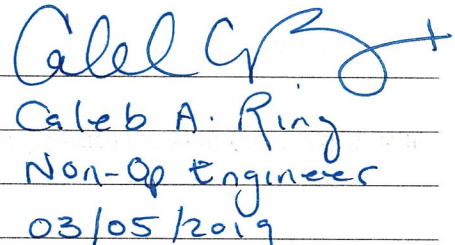 Caleb A. Ring
Non-Op Engineer
03/05/2019